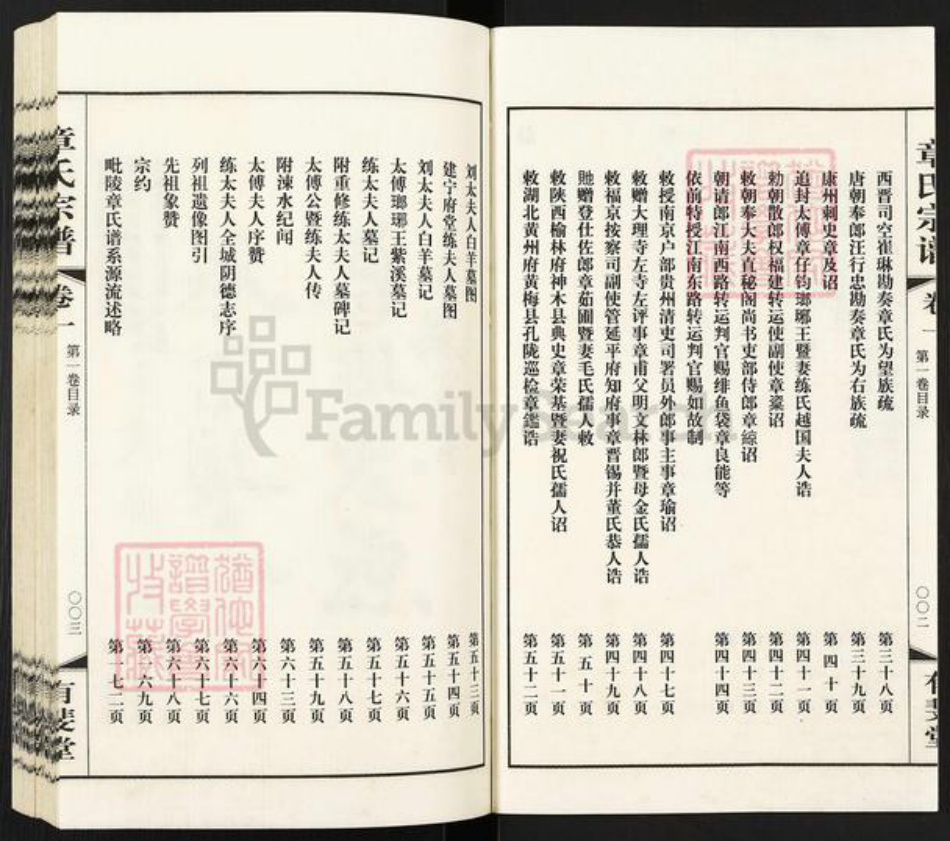 章氏宗谱
卷一
第一卷目录
〇〇二
有斐堂
西晋司空崔琳勘奏章氏为望族疏
第三十八页
唐朝奉郎汪行忠勘奏章氏为右族疏
第三十九页
康州刺史章及诏
第四十页
追封太傅章仔钧瑯琊王暨妻练氏越国夫人诰
第四十一页
勅朝散郎权福建转运使副使章粢诏
第四十二页
敕朝奉大夫直秘阁尚书吏部侍郎章綡诏
第四十三页
朝请郎江南西路转运判官赐绯鱼袋章良能等
第四十四页
依前特授江南东路转运判官赐如故制
敕授南京户部贵州清吏司署员外郎事主事章瑜诏
第四十七页
敕赠大理寺左寺左评事章甫父明文林郎暨母金氏孺人诰
第四十八页
敕福京按察司副使管延平府知府事章晋锡并董氏恭人诰
第四十九页
貤赠登仕佐郎章茹圃暨妻毛氏孺人敕
第五十页
敕陕西榆林府神木县典史章荣基暨妻祝氏孺人诏
第五十一页
敕湖北黄州府黄梅县孔陇巡检章鑑诰
第五十二页
刘太夫人白羊墓图
第五十三页
建宁府堂练夫人墓图
第五十四页
刘太夫人白羊墓记
第五十五页
太傅瑯琊王紫溪墓记
第五十六页
练太夫人墓记
第五十七页
附重修练太夫人墓碑记
第五十八页
太傅公暨练夫人传
第五十九页
附涑水纪闻
第六十三页
太傅夫人序赞
第六十四页
练太夫人全城阴德志序
第六十六页
列祖遗像图引
第六十七页
先祖象赞
第六十八页
宗约
第一六九页
毗陵章氏谱系源流述略
第一七二页
章氏宗谱
卷一
第一卷目录
〇〇三
有斐堂
FamilySearch